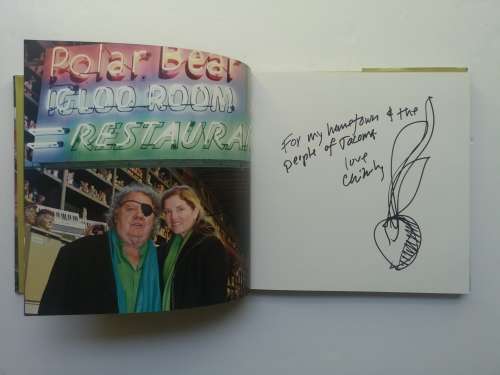 Polar Bear
IGLOO ROOM
RESTAURAN
For my hometown & the
people of Tacoma
love
Chihuly